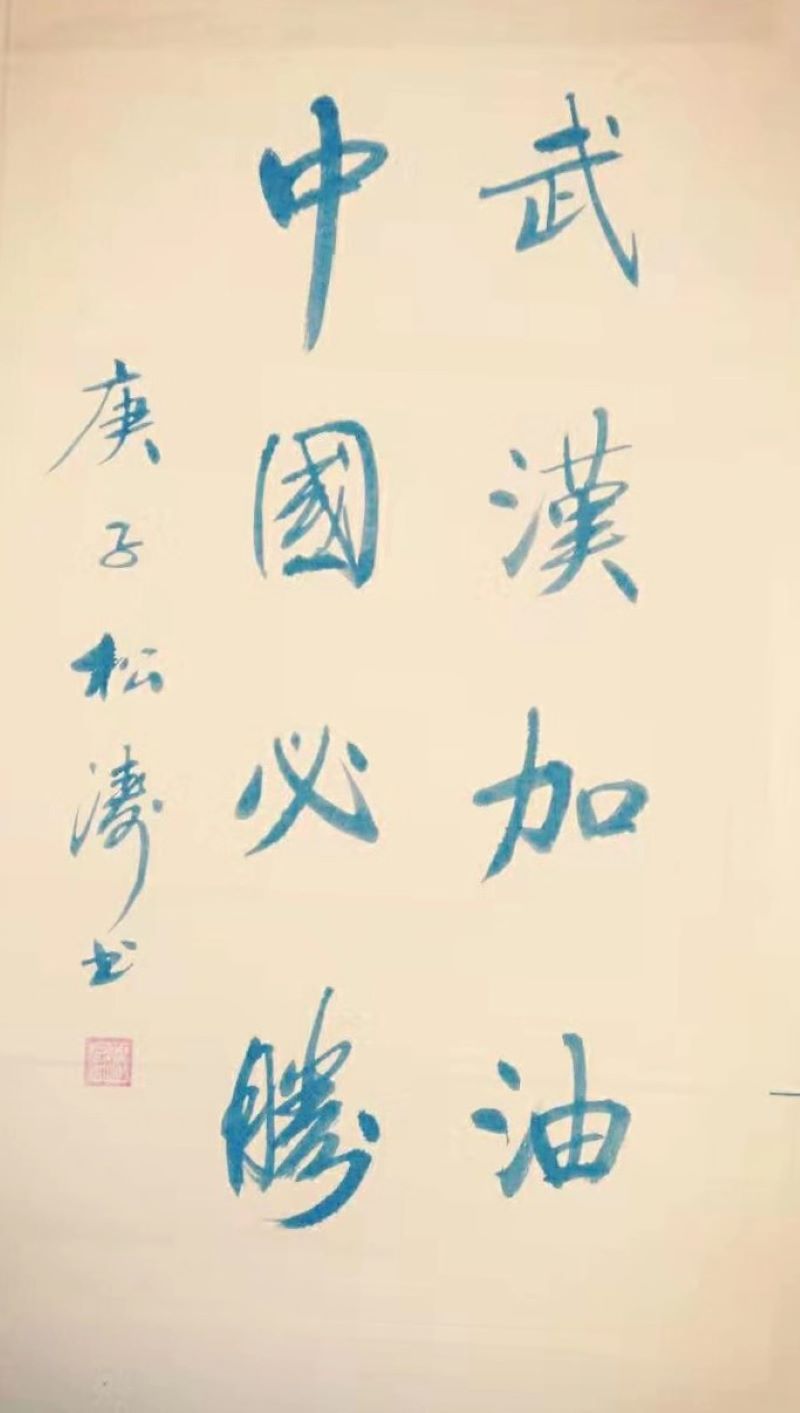 武漢加油
中國必勝
庚子松濤书